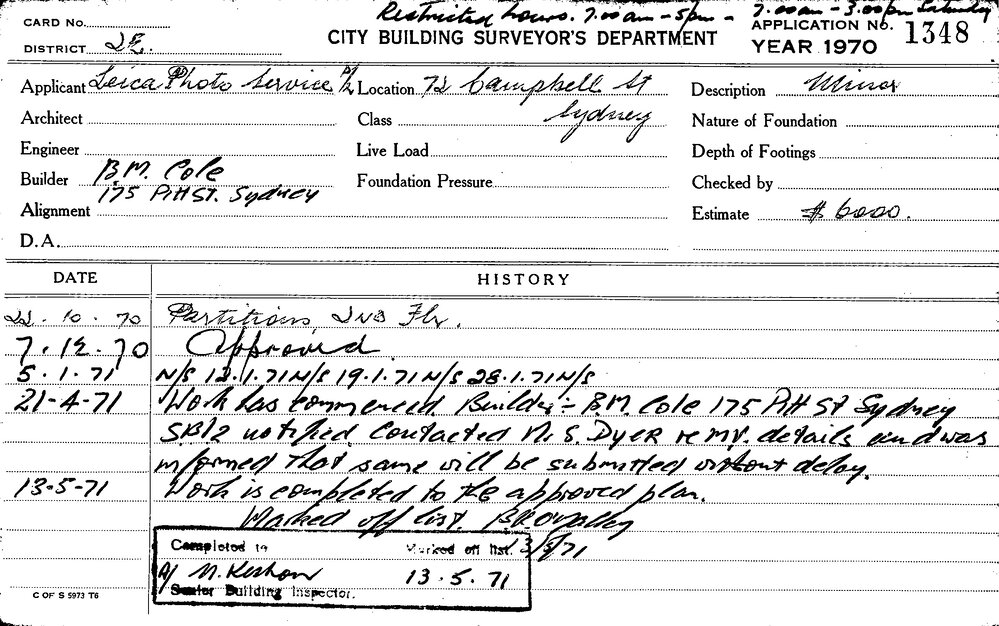 Restricted hours. 7.00am - 5pm - 7.00am - 3.00pm Saturday
CARD No.
CITY BUILDING SURVEYOR'S DEPARTMENT
APPLICATION No. 1348
DISTRICT 2E.
YEAR 1970
Applicant Leica Photo Service P/L Location 72 Campbell St Description Minor
Architect Class Sydney Nature of Foundation
Engineer Live Load Depth of Footings
Builder B.M. Cole Foundation Pressure Checked by
175 Pitt St. Sydney
Alignment Estimate $6000.
D.A.
DATE HISTORY
22.10.70 Partitions 2nd Flr.
7.12.70 Approved
5.1.71 N/S 12.1.71 N/S 19.1.71 N/S 28.1.71 N/S
21-4-71 Work has commenced. Builder:- B.M. Cole 175 Pitt St Sydney
SB12 notified. Contacted N. S. DYER re mv. details and was
informed that same will be submitted without delay.
13-5-71 Work is completed to the approved plan.
Marked off list.
13/5/71
Completed Marked off list.
A/ 13.5.71
Senior Building Inspector.
C OF S 5973 T6